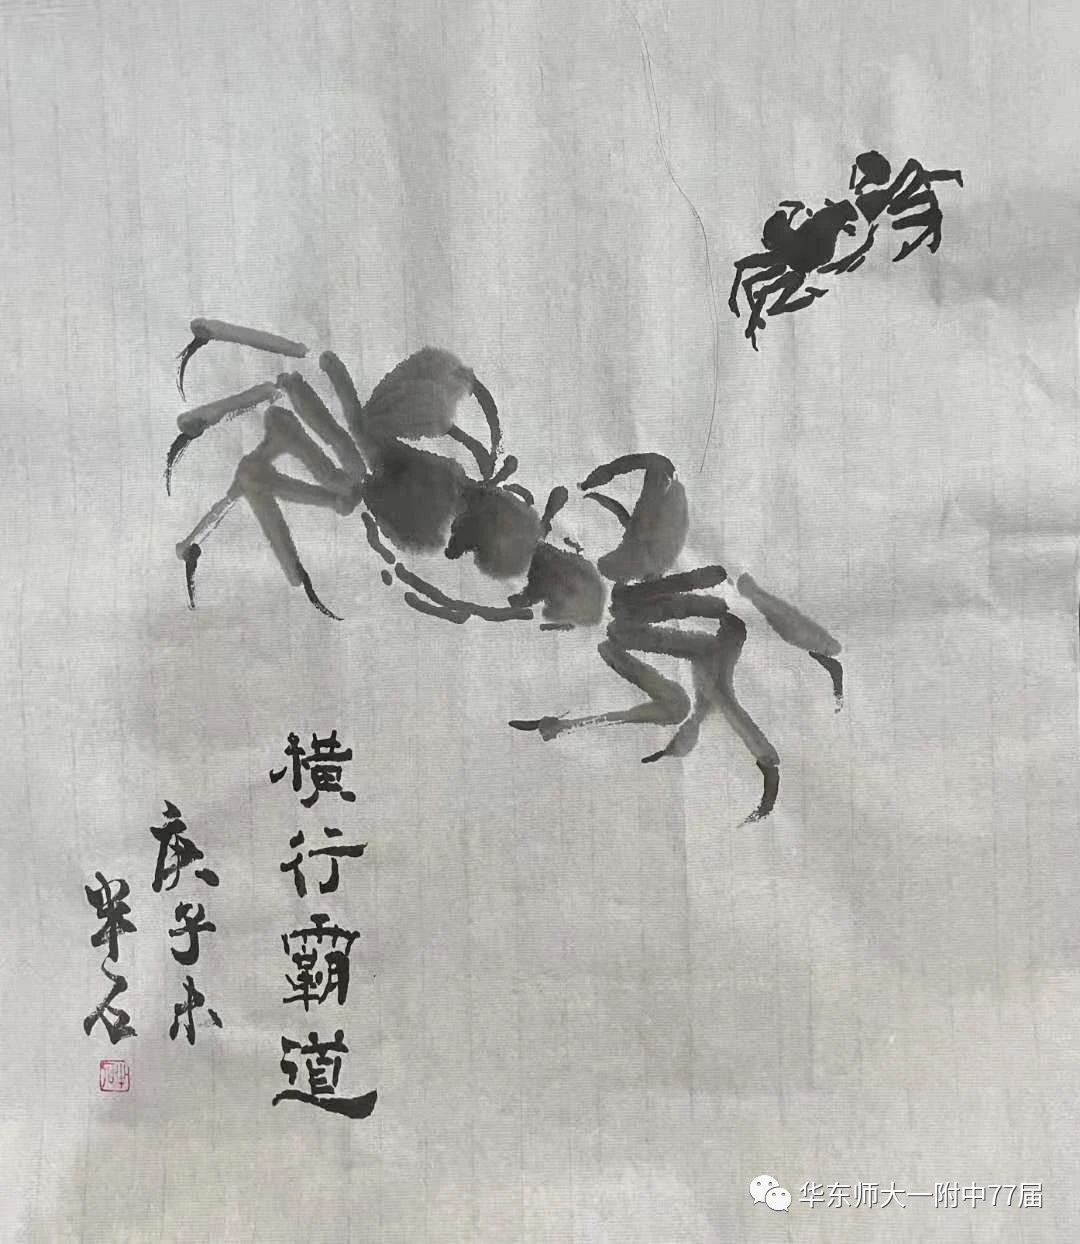 横行霸道
庚子末
半石
华东师大一附中77届